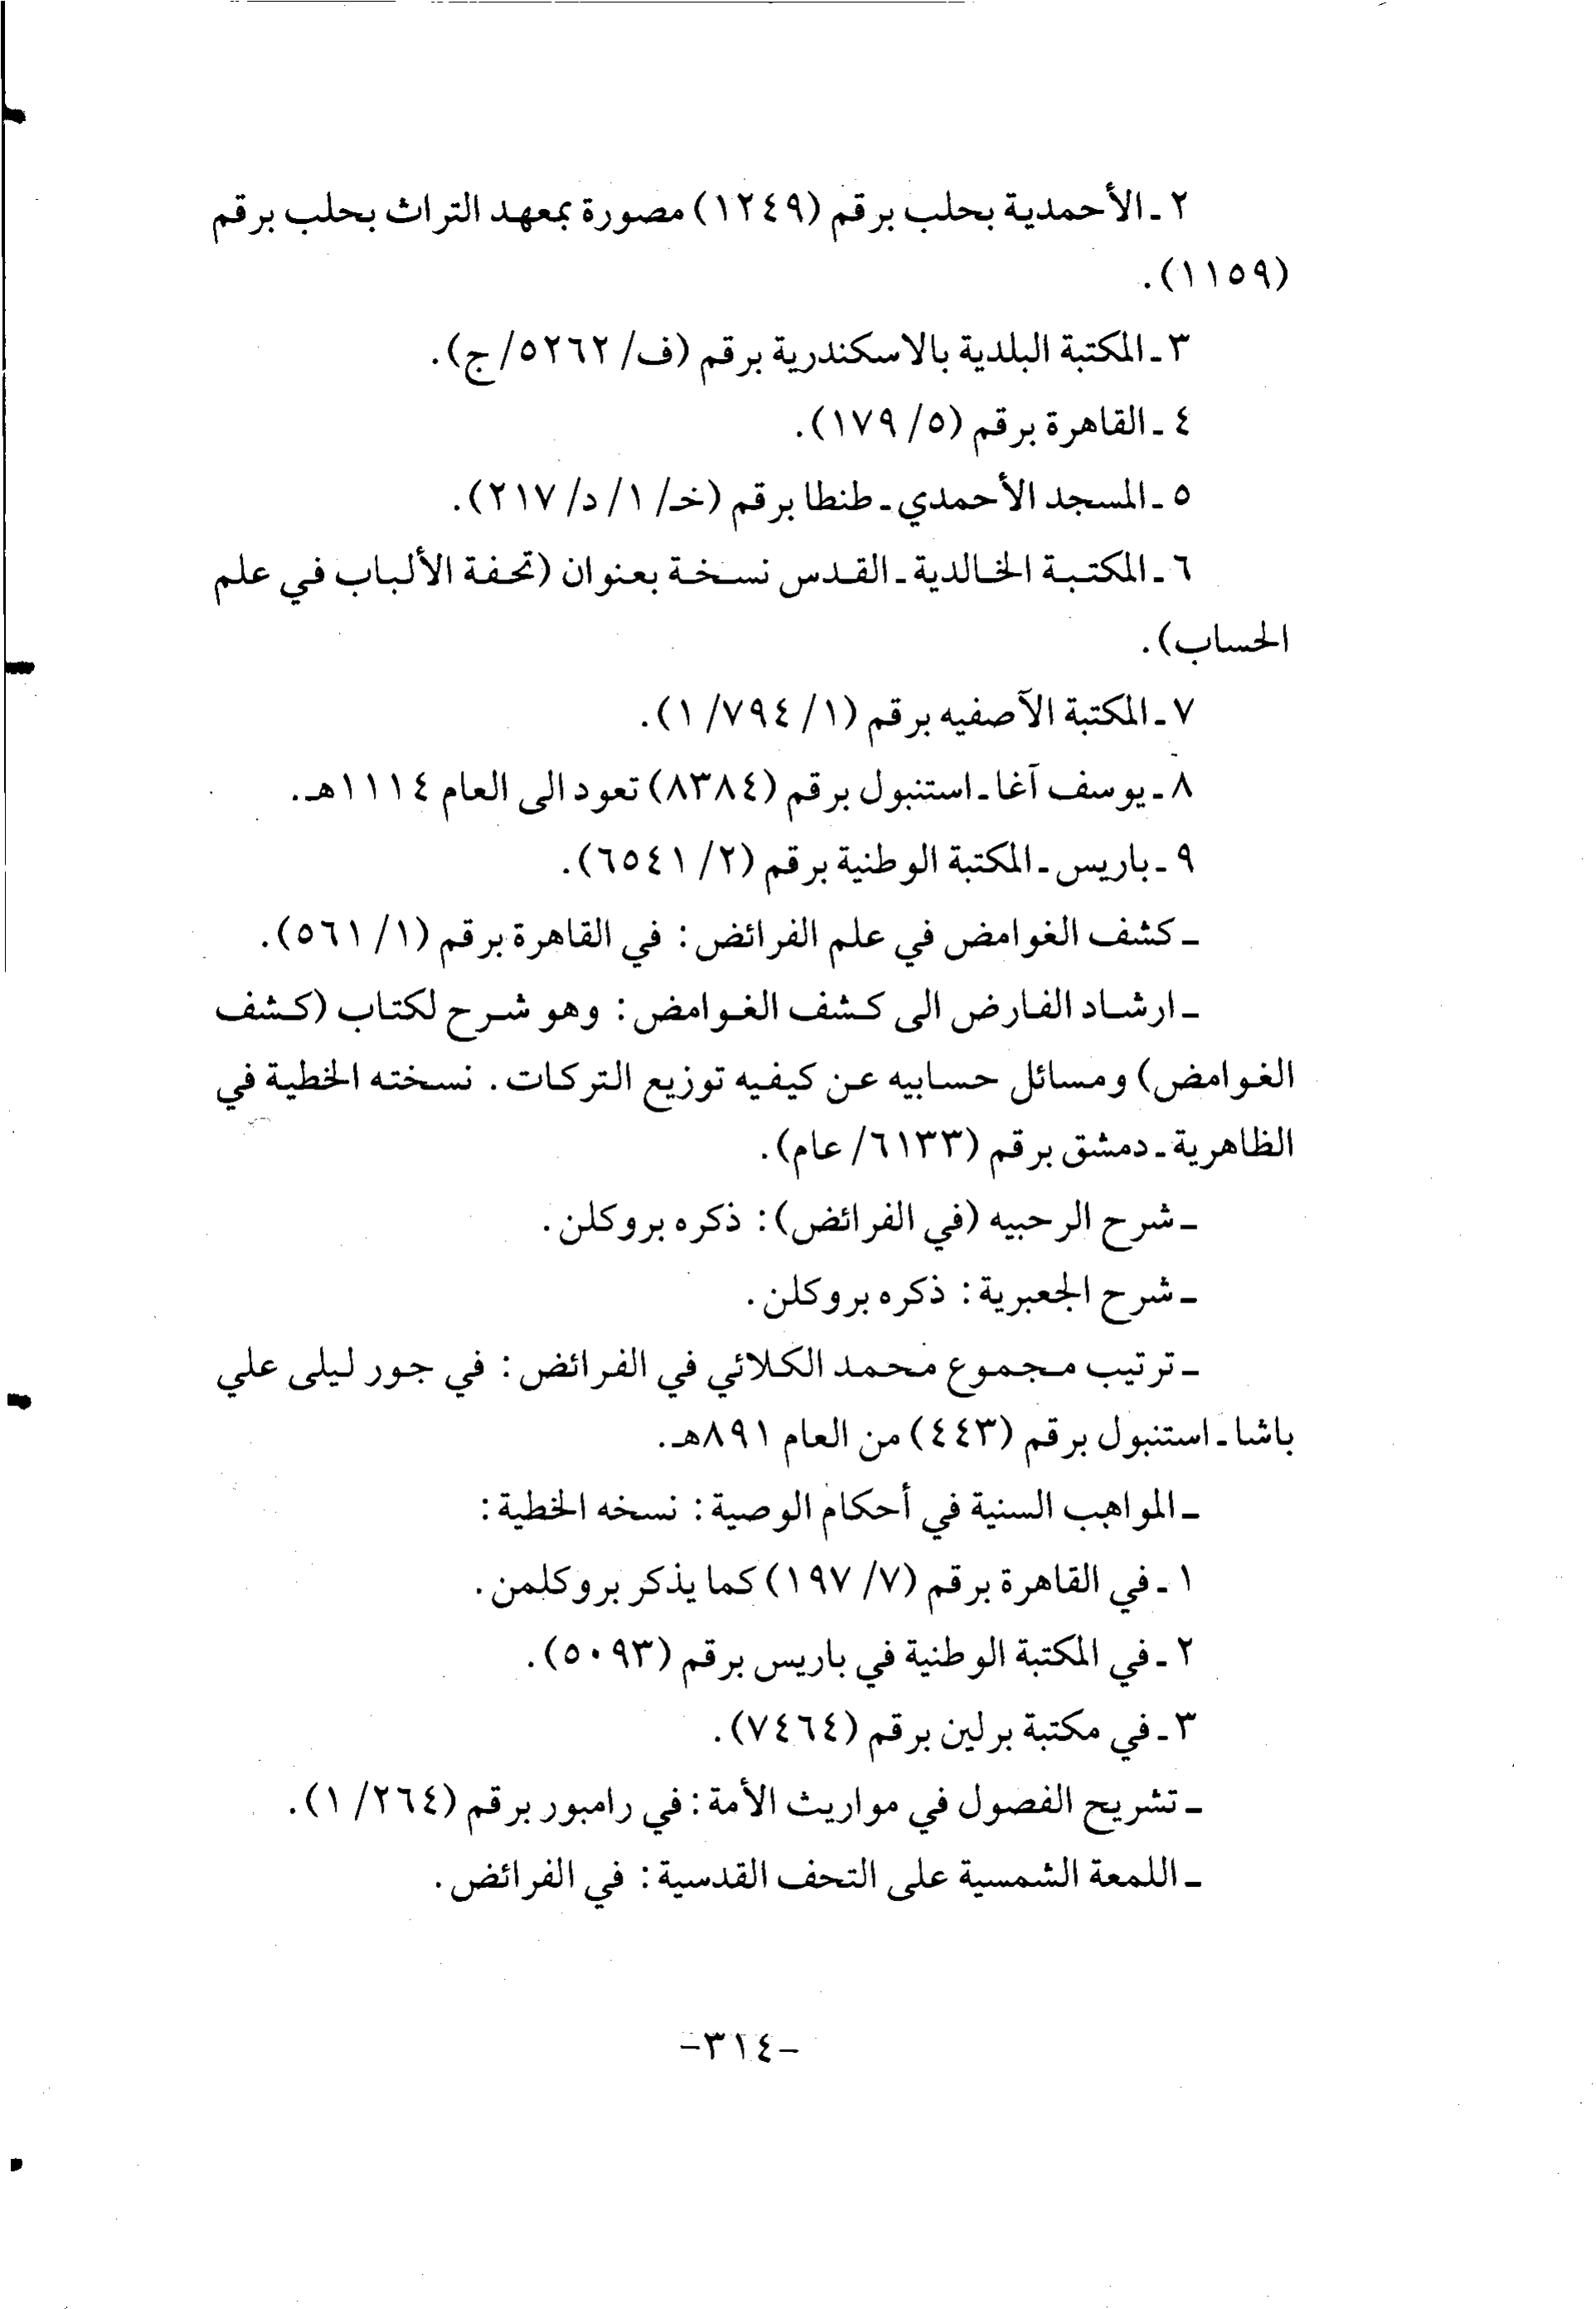 ٢ ـ الأحمدية بحلب برقم (١٢٤٩) مصورة بمعهد التراث بحلب برقم
(١١٥٩).
٣ ـ المكتبة البلدية بالاسكندرية برقم (ف/ ٥٢٦٢/ ج).
٤ ـ القاهرة برقم (٥/ ١٧٩).
٥ ـ المسجد الأحمدي ـ طنطا برقم (خـ/ ١/ د/ ٢١٧).
٦ ـ المكتبة الخالدية ـ القدس نسخة بعنوان (تحفة الألباب في علم
الحساب).
٧ ـ المكتبة الآصفيه برقم (١/ ٧٩٤/ ١).
٨ ـ يوسف آغا ـ استنبول برقم (٨٣٨٤) تعود الى العام ١١١٤هـ.
٩ ـ باريس ـ المكتبة الوطنية برقم (٢/ ٦٥٤١).
ـ كشف الغوامض في علم الفرائض: في القاهرة برقم (١/ ٥٦١).
ـ ارشاد الفارض الى كشف الغوامض: وهو شرح لكتاب (كشف
الغوامض) ومسائل حسابيه عن كيفيه توزيع التركات. نسخته الخطية في
الظاهرية ـ دمشق برقم (٦١٣٣/ عام).
ـ شرح الرحبيه (في الفرائض): ذكره بروكلن.
ـ شرح الجعبرية: ذكره بروكلن.
ـ ترتيب مجموع محمد الكلائي في الفرائض: في جور ليلى علي
باشا ـ استنبول برقم (٤٤٣) من العام ٨٩١هـ.
ـ المواهب السنية في أحكام الوصية: نسخه الخطية:
١ ـ في القاهرة برقم (٧/ ١٩٧) كما يذكر بروكلمن.
٢ ـ في المكتبة الوطنية في باريس برقم (٥٠٩٣).
٣ ـ في مكتبة برلين برقم (٧٤٦٤).
ـ تشريح الفصول في مواريث الأمة: في رامبور برقم (٢٦٤/ ١).
ـ اللمعة الشمسية على التحف القدسية: في الفرائض.
-٣١٤-